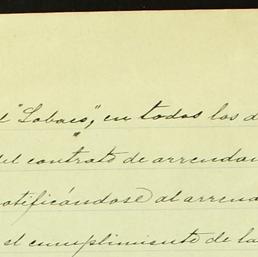 "Lobaco", en todos los d
del contrato de arrendam
notificándose al arrenda
el cumplimiento de la